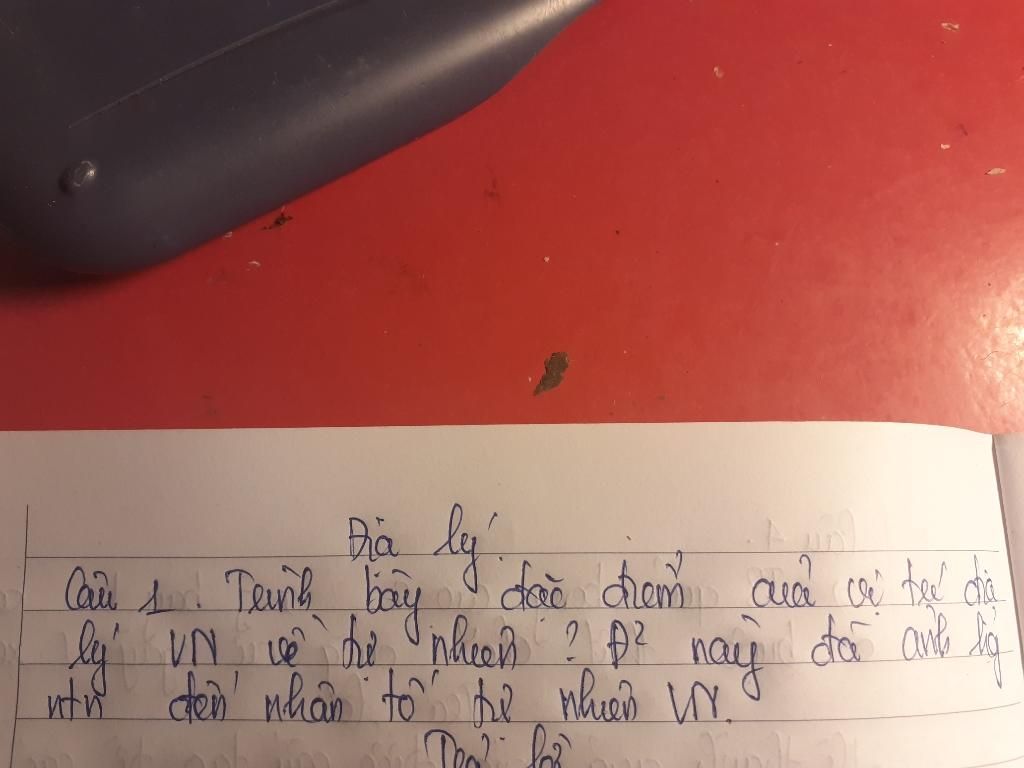 Địa lý.
Câu 1. Trình bày đặc điểm của vị trí địa
lý VN về tự nhiên? Đ² này đã ảnh hg
ntn đến nhân tố tự nhiên VN.
Trả lời